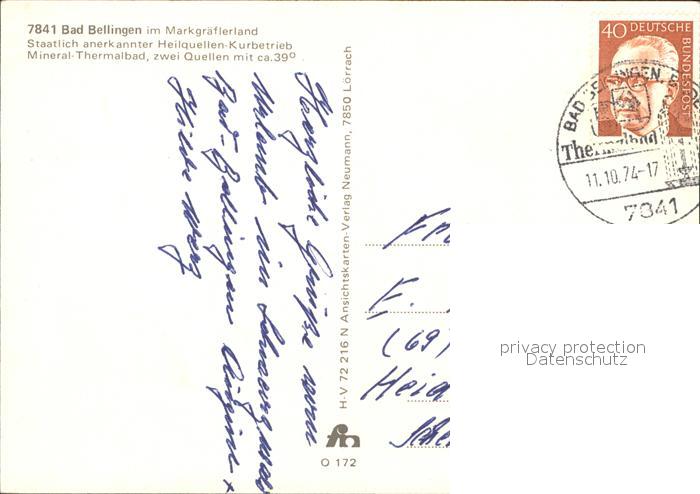 7841 Bad Bellingen im Markgräflerland
Staatlich anerkannter Heilquellen-Kurbetrieb
Mineral-Thermalbad, zwei Quellen mit ca.39º
40 DEUTSCHE
BUNDESPOST
BAD BELLINGEN
Thermalbad
11.10.74-17
7841
Herzliche Grüße vom
Urlaub im Schwarzwald
Bad-Bellingen
Hilde
H-V 72 216 N Ansichtskarten-Verlag Neumann, 7850 Lörrach
O 172
E.
(69)
privacy protection
Datenschutz